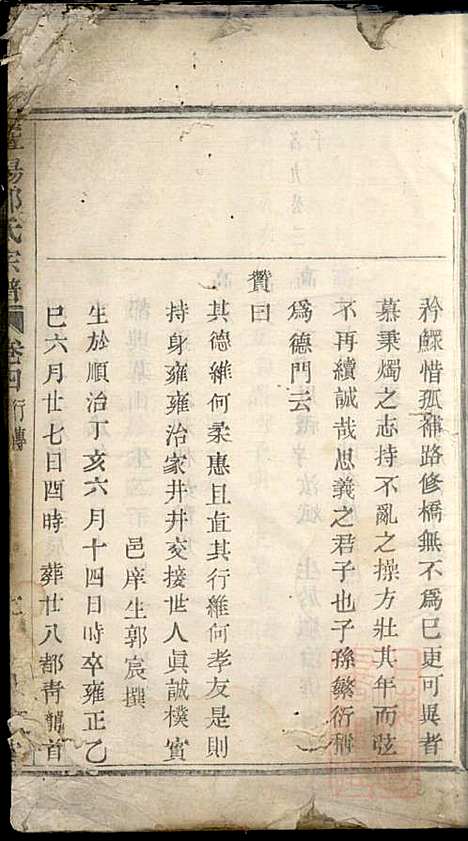 矜鰥惜孤補路修橋無不為已更可異者
慕秉燭之志持不亂之操方壯其年而弦
不再續誠哉思義之君子也子孫繁衍稱
為德門云
贊曰
其德維何柔惠且直其行維何孝友是則
持身雍雍治家井井交接世人眞誠樸實
邑庠生郭宸撰
生於順治丁亥六月十四日時卒雍正乙
巳六月廿七日酉時 葬廿八都靑龍首
陽郭氏宗譜 卷四 行傳